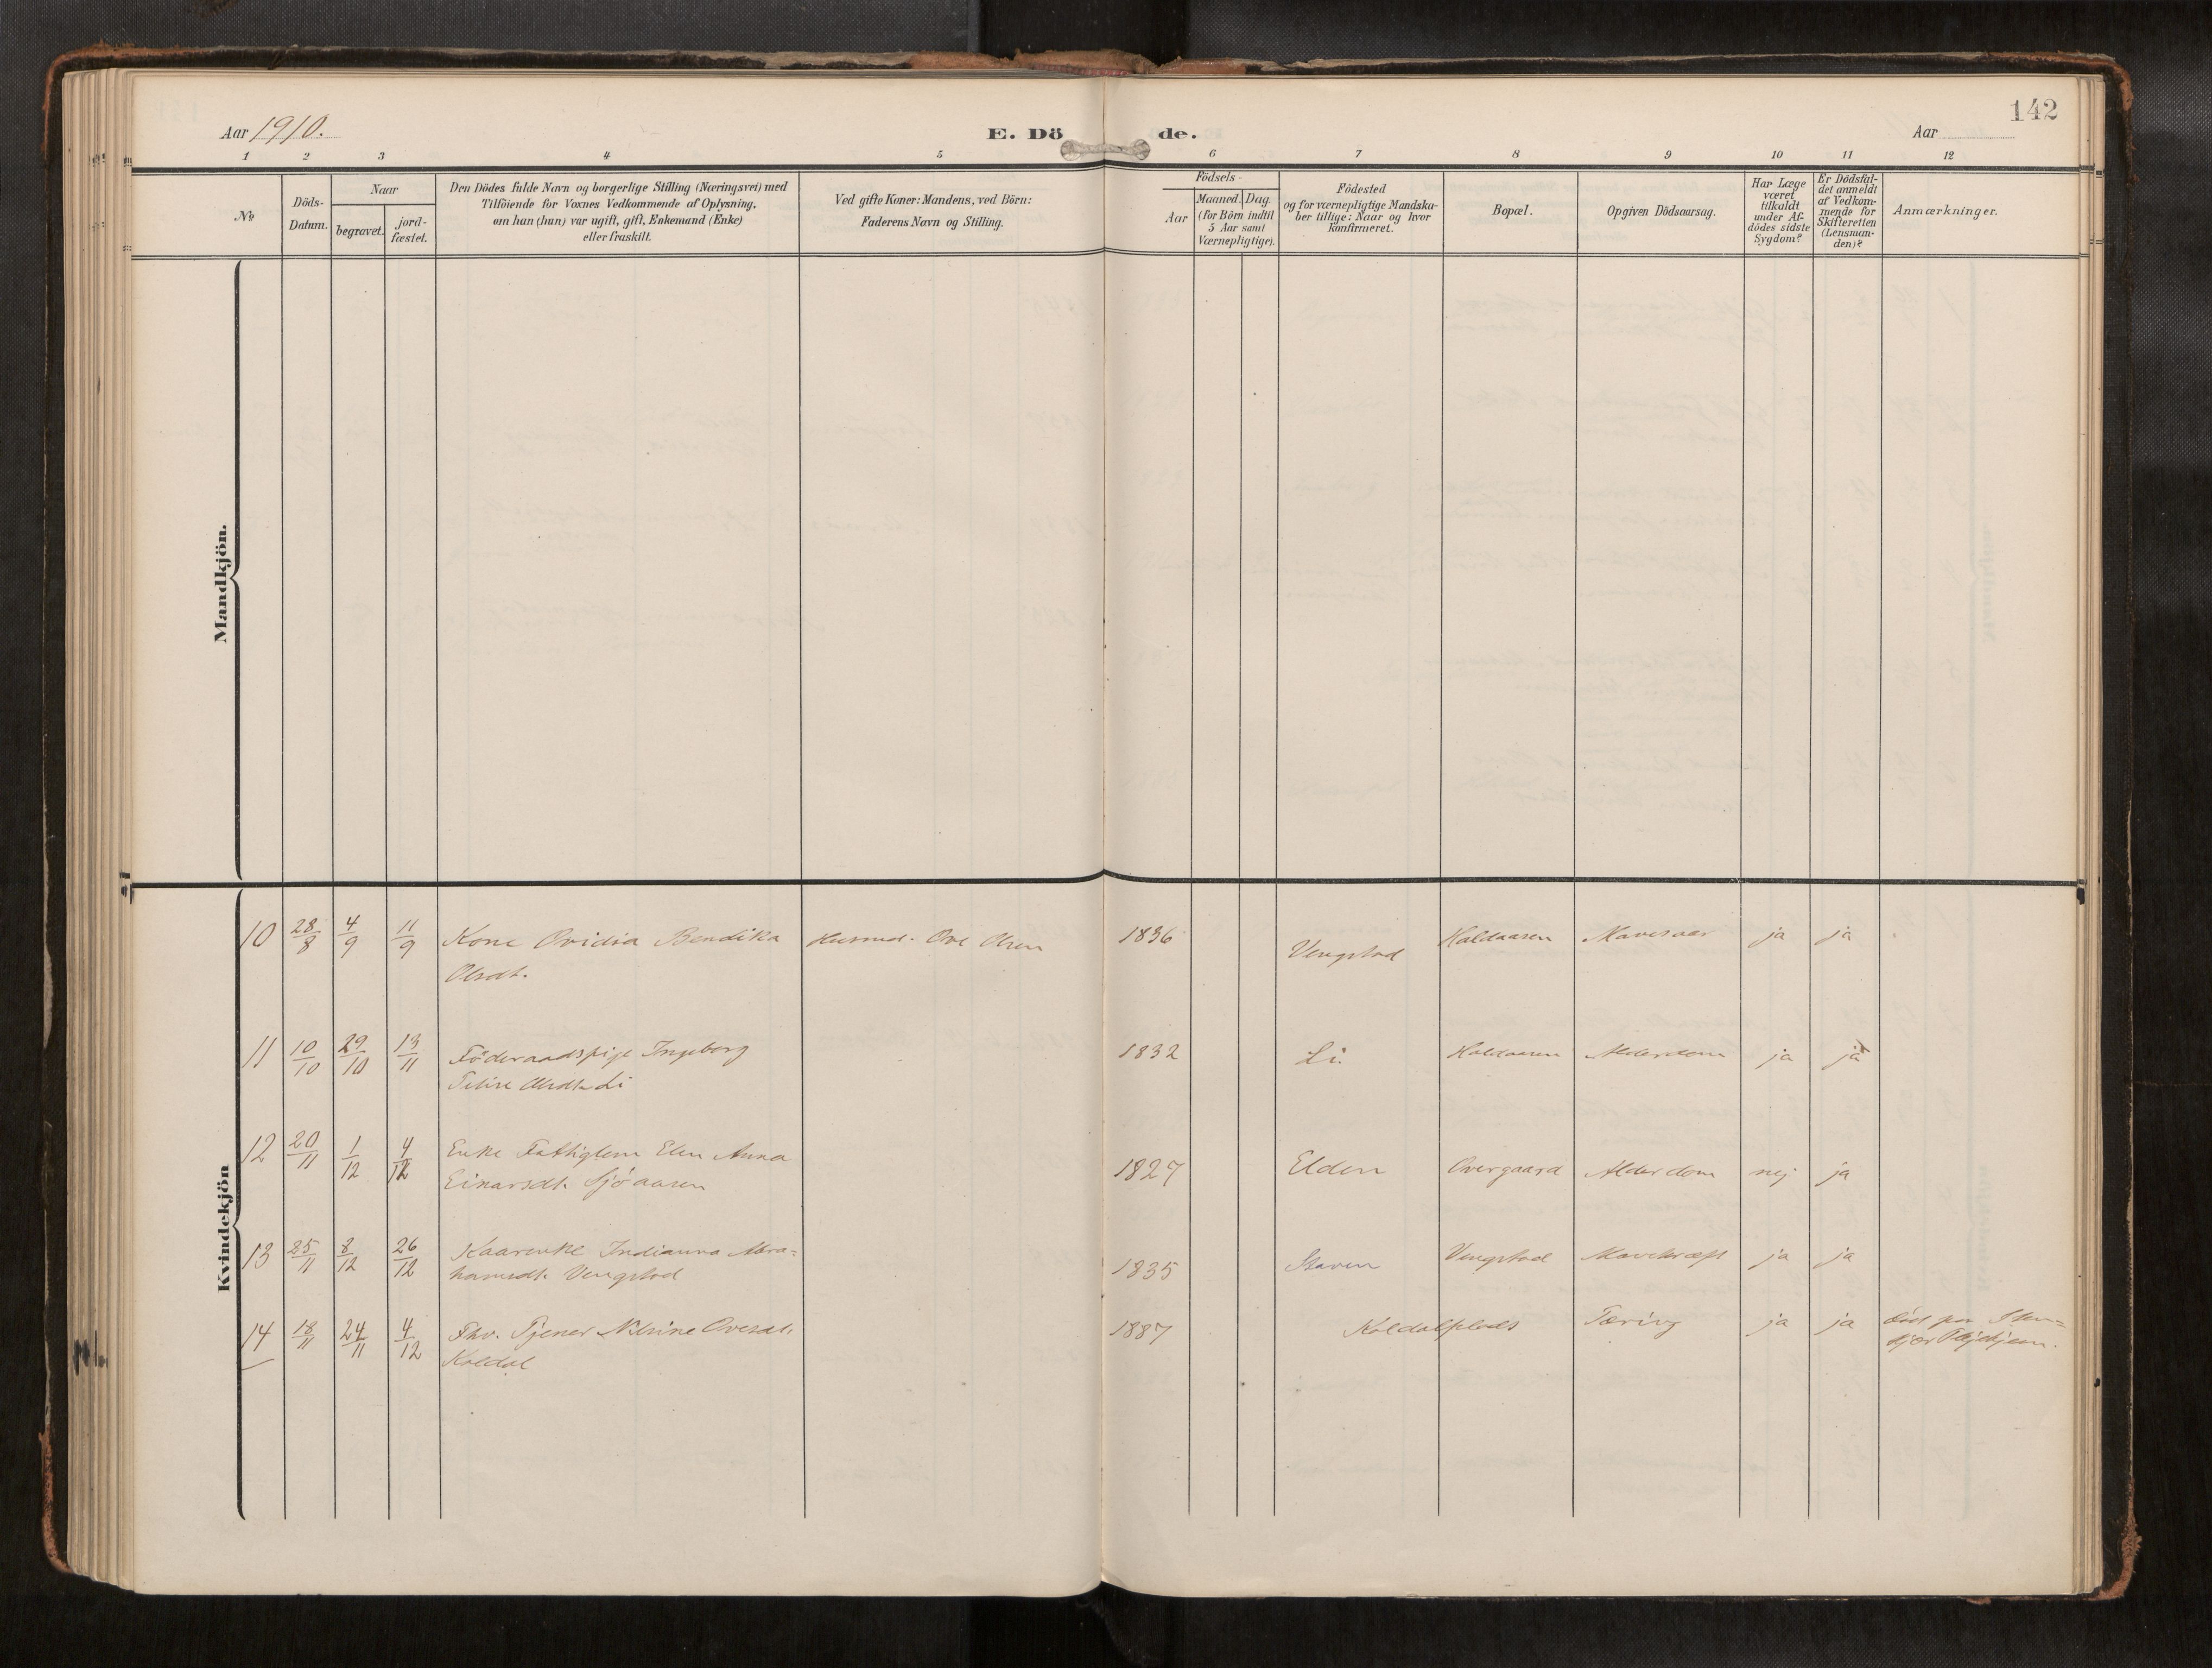 142
Aar 1910.
E. Dö
de.
Aar
1 2 3 4 5 6 7 8 9 10 11 12
No
Döds-
Datum.
Naar
begravet.
jord-
fæstet.
Den Dödes fulde Navn og borgerlige Stilling (Næringsvei) med
Tilföiende for Voxnes Vedkommende af Oplysning,
om han (hun) var ugift, gift, Enkemand (Enke)
eller fraskilt.
Ved gifte Koner: Mandens, ved Börn:
Faderens Navn og Stilling.
Födsels-
Aar
Maaned. Dag.
(for Börn indtil
5 Aar samt
Værnepligtige).
Födested
og for værnepligtige Mandska-
ber tillige: Naar og hvor
konfirmeret.
Bopæl.
Opgiven Dödsaarsag.
Har Læge
været
tilkaldt
under Af-
dödes sidste
Sygdom?
Er Dödsfal-
det anmeldt
af Vedkom-
mende for
Skifteretten
(Lensman-
den)?
Anmærkninger.
Mandkjön.
Kvindekjön
10 28/8 4/9 11/9 Kone Ovidia Bendika Husmd. Ove Olsen 1836 Vengstad Haldaasen Mavesaar ja ja
Olsdt.
11 10/10 29/10 13/11 Föderaadspige Ingeborg 1832 Li. Haldaasen Alderdom ja ja
Olsdt. Li
12 20/11 1/12 4/12 Enke Fattiglem Elen Anna
Einarsdt. Sjöaasen 1827 Elden Overgaard Alderdom nej ja
13 25/11 8/12 26/12 Kaarenke Indianna Abra=
hamsdt. Vengstad 1835 Staven Vengstad Mavekræft ja ja
14 18/11 24/11 4/12 Fhv. Tjener Nelsine Ovesdt. 1887 Koldalplads Tæring ja ja död paa Sten=
Koldal
kjær Plejehjem.